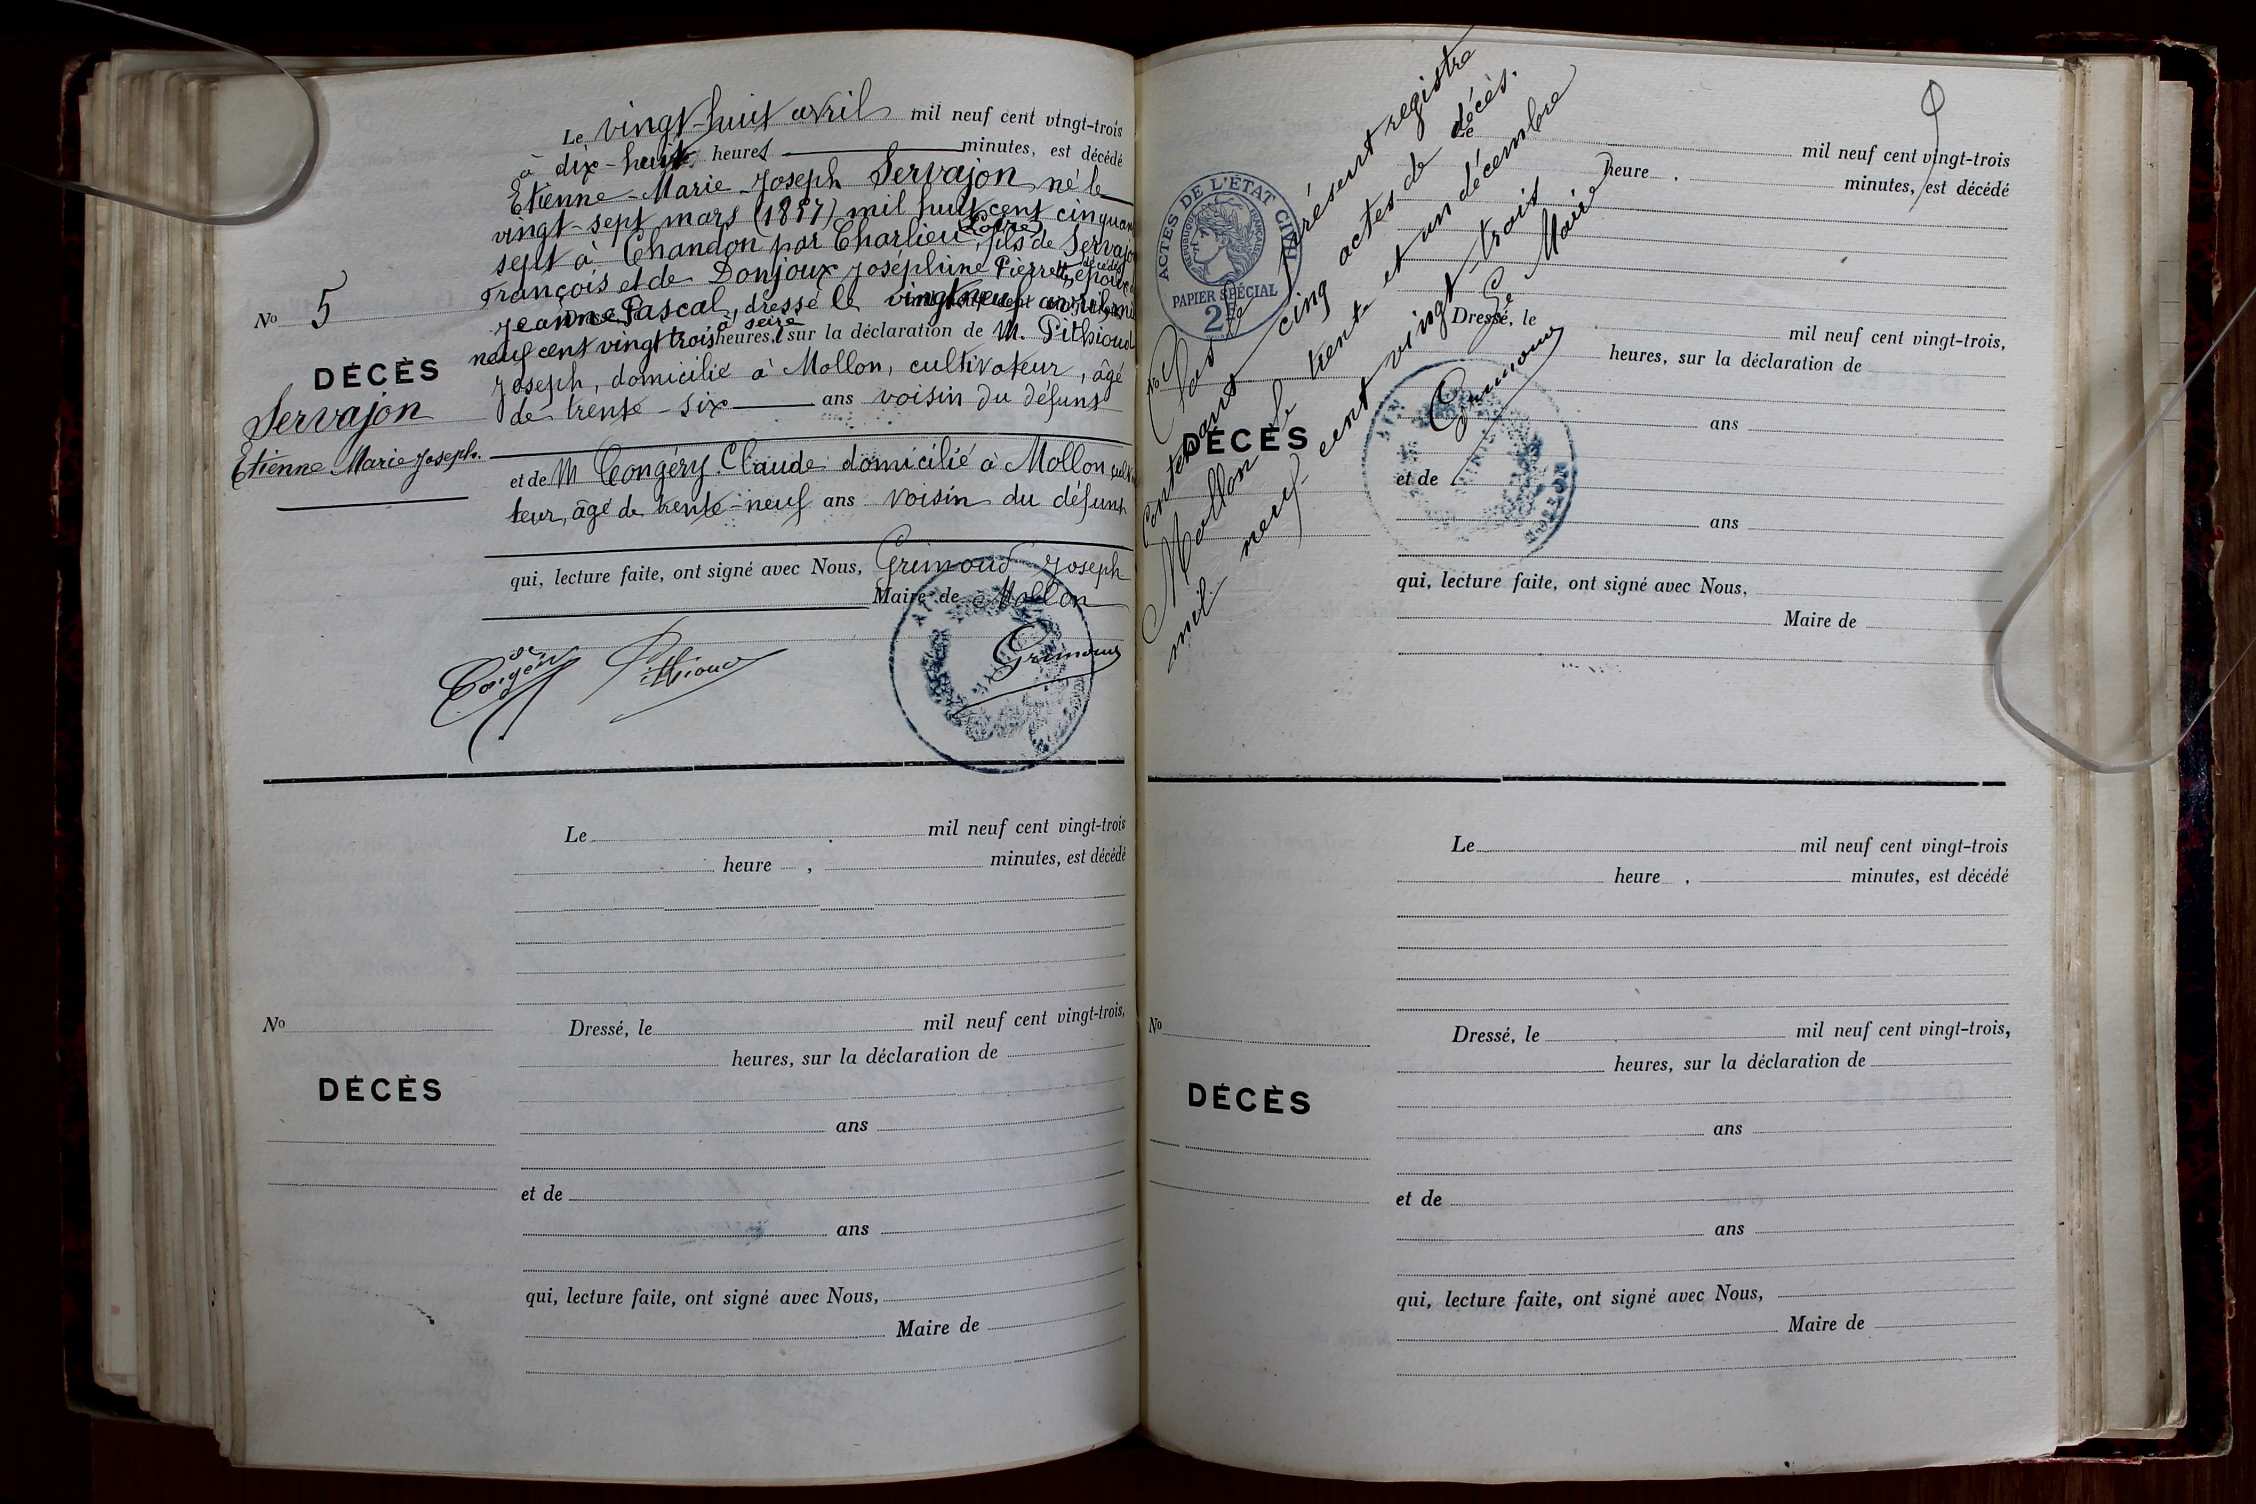 Le vingt-huit avril mil neuf cent vingt-trois
à dix-huit heures minutes, est décédé
Etienne-Marie-Joseph Servajon né le
vingt-sept mars (1857) mil huit cent cinquante
sept à Chandon par Charlieu (Loire), fils de Servajon
François et de Donjoux Joséphine Pierrette, décédés, époux de
Jeanne Pascal, dressé le vingt neuf avril mil
neuf cent vingt trois à seize heures, sur la déclaration de M. Pithioud
Joseph, domicilié à Mollon, cultivateur, âgé
de trente-six ans voisin du défunt
et de M Congéry Claude domicilié à Mollon, culti
teur, âgé de trente-neuf ans voisin du défunt
qui, lecture faite, ont signé avec Nous, Grimoud Joseph
Maire de Mollon
Pithioud
Grimoud
No 5
DÉCÈS
Servajon
Etienne Marie Joseph.
Le mil neuf cent vingt-trois
heure , minutes, est décédé
No
Dressé, le mil neuf cent vingt-trois,
heures, sur la déclaration de
DÉCÈS
ans
et de
ans
qui, lecture faite, ont signé avec Nous,
Maire de
ACTES DE L'ÉTAT CIVIL
RÉPUBLIQUE FRANÇAISE
PAPIER SPÉCIAL
2F
Clos le présent registre
contenant cinq actes de décès.
Mollon le trente et un décembre
mil neuf cent vingt-trois
Le Maire
Grimoud
AIN
9
Le mil neuf cent vingt-trois
heure , minutes, est décédé
No
Dressé, le mil neuf cent vingt-trois,
heures, sur la déclaration de
DÉCÈS
ans
et de
ans
qui, lecture faite, ont signé avec Nous,
Maire de
Le mil neuf cent vingt-trois
heure , minutes, est décédé
No
Dressé, le mil neuf cent vingt-trois,
heures, sur la déclaration de
DÉCÈS
ans
et de
ans
qui, lecture faite, ont signé avec Nous,
Maire de